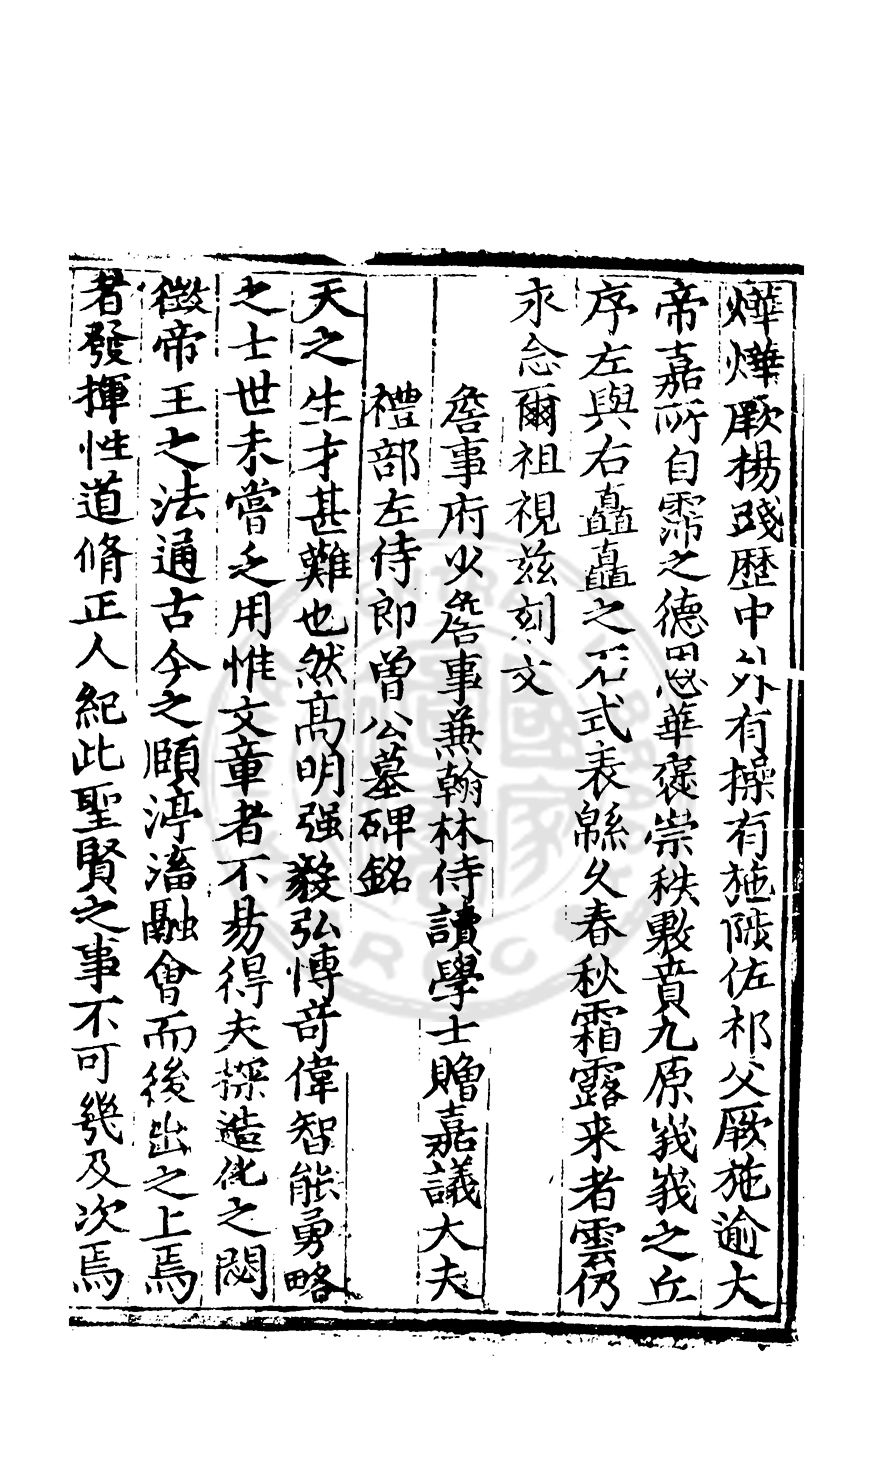 燁燁厥楊踐歷中外有操有施陟佐祁父厥施逾大
帝嘉所自霈之德恩華褒崇秩敷賁九原峩峩之丘
序左與右矗矗之石式表緜久春秋霜露来者雲仍
永念爾祖視兹刻文
詹事府少詹事兼翰林侍讀學士贈嘉議大夫
禮部左侍郎曾公墓碑銘
天之生才甚難也然髙明强毅弘愽竒偉智能勇略
之士世未嘗乏用惟文章者不易得夫探造化之閟
徵帝王之法通古今之賾渟滀融會而後出之上焉
者發揮性道脩正人紀此聖賢之事不可㡬及次焉